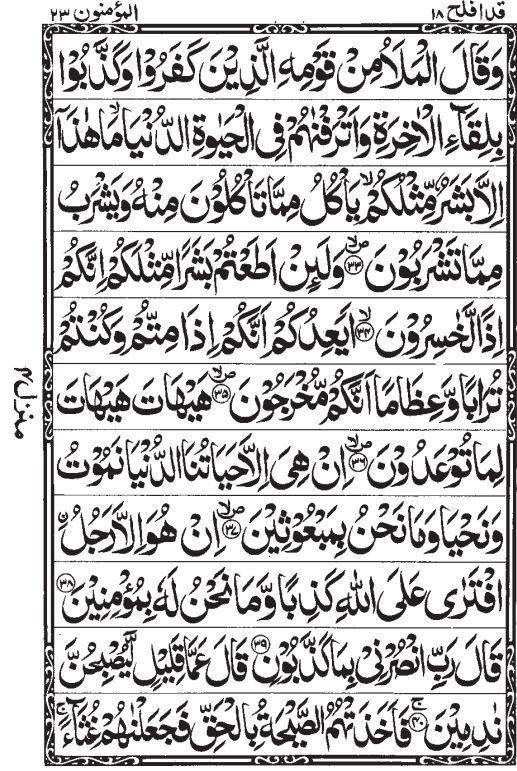 قد افلح ١٨
المؤمنون ٢٣
وَقَالَ الْمَلَاُ مِنْ قَوْمِهِ الَّذِيْنَ كَفَرُوْا وَكَذَّبُوْا
بِلِقَآءِ الْاٰخِرَةِ وَاَتْرَفْنٰهُمْ فِى الْحَيٰوةِ الدُّنْيَا ۙ مَا هٰذَاۤ
اِلَّا بَشَرٌ مِّثْلُكُمْ ۙ يَاْكُلُ مِمَّا تَاْكُلُوْنَ مِنْهُ وَيَشْرَبُ
مِمَّا تَشْرَبُوْنَ ۪ۙ‏﴿۳۳﴾ وَلَئِنْ اَطَعْتُمْ بَشَرًا مِّثْلَكُمْ اِنَّكُمْ
اِذًا لَّخٰسِرُوْنَ ۙ‏﴿۳۴﴾ اَيَعِدُكُمْ اَنَّكُمْ اِذَا مِتُّمْ وَكُنْتُمْ
تُرَابًا وَّعِظَامًا اَنَّكُمْ مُّخْرَجُوْنَ ۪ۙ‏﴿۳۵﴾ هَيْهَاتَ هَيْهَاتَ
لِمَا تُوْعَدُوْنَ ۪ۙ‏﴿۳۶﴾ اِنْ هِىَ اِلَّا حَيَاتُنَا الدُّنْيَا نَمُوْتُ
وَنَحْيَا وَمَا نَحْنُ بِمَبْعُوْثِيْنَ ۪ۙ‏﴿۳۷﴾ اِنْ هُوَ اِلَّا رَجُلُ ۨ
افْتَرٰى عَلَى اللّٰهِ كَذِبًا وَّمَا نَحْنُ لَهٗ بِمُؤْمِنِيْنَ ﴿۳۸﴾
قَالَ رَبِّ انْصُرْنِىْ بِمَا كَذَّبُوْنِ ﴿۳۹﴾ قَالَ عَمَّا قَلِيْلٍ لَّيُصْبِحُنَّ
نٰدِمِيْنَ ۚ‏﴿۴۰﴾ فَاَخَذَتْهُمُ الصَّيْحَةُ بِالْحَقِّ فَجَعَلْنٰهُمْ غُثَآءً ۚ
منزل ۴